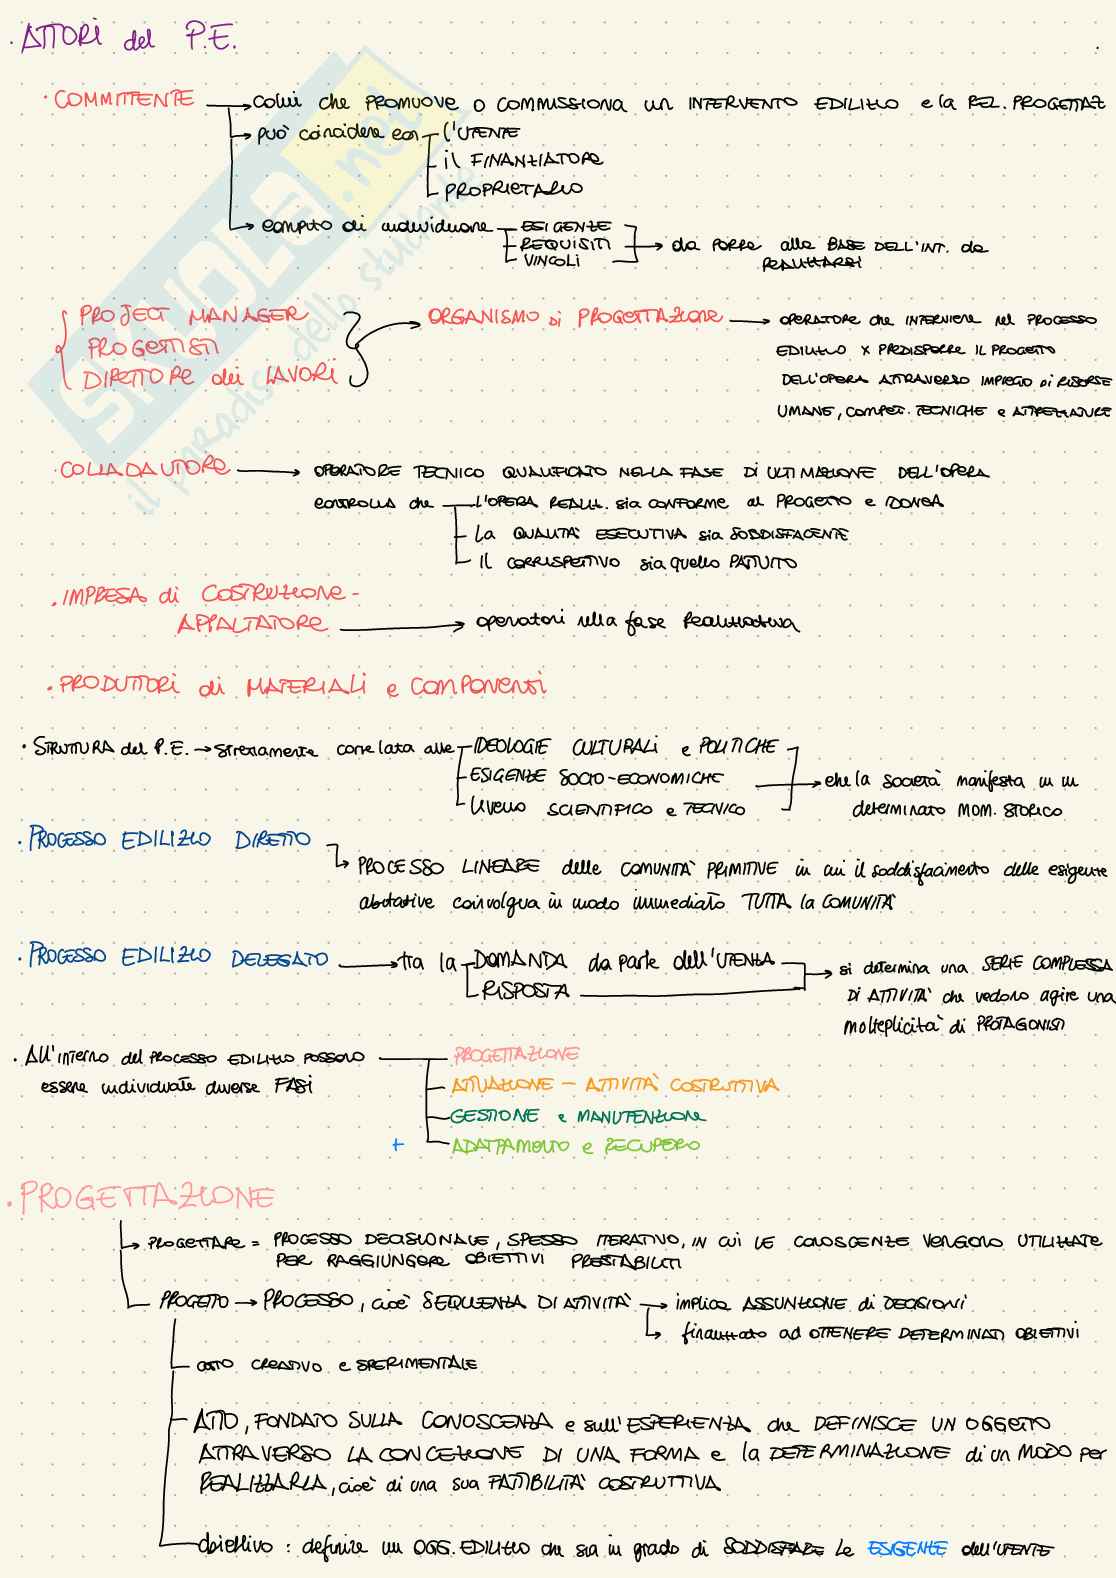 . ATTORI del P.E.
· COMMITTENTE → colui che PROMUOVE O COMMISSIONA un INTERVENTO EDILIZIO e la REL. PROGETTAZ
→ può coincidere con l'UTENTE
il FINANZIATORE
PROPRIETARIO
→ compito di individuare ESIGENZE
REQUISITI → da PORRE alla BASE DELL'INT. da
VINCOLI REALIZZARSI
PROJECT MANAGER ORGANISMO di PROGETTAZIONE → OPERATORE che INTERVIENE nel PROCESSO
PROGETTISTI EDILIZIO X PREDISPORRE IL PROGETTO
DIRETTORE dei LAVORI DELL'OPERA ATTRAVERSO IMPIEGO di RISORSE
UMANE, COMPET. TECNICHE e ATTREZZATURE
· COLLAUDATORE → OPERATORE TECNICO QUALIFICATO NELLA FASE DI ULTIMAZIONE DELL'OPERA
CONTROLLA che L'OPERA REALIZZ. sia CONFORME al PROGETTO e IDONEA
La QUALITÀ ESECUTIVA sia SODDISFACENTE
Il CORRISPETTIVO sia quello PATTUITO
. IMPRESA di COSTRUZIONE -
APPALTATORE → operatori nella fase Realizzativa
. PRODUTTORI di MATERIALI e COMPONENTI
· STRUTTURA del P.E. → strettamente correlata alle IDEOLOGIE CULTURALI e POLITICHE
ESIGENZE SOCIO-ECONOMICHE → che la società manifesta in un
livello SCIENTIFICO e TECNICO determinato MOM. STORICO
. PROCESSO EDILIZIO DIRETTO
→ PROCESSO LINEARE delle COMUNITÀ PRIMITIVE in cui il soddisfacimento delle esigenze
abitative coinvolgeva in modo immediato TUTTA la COMUNITÀ
. PROCESSO EDILIZIO DELEGATO → tra la DOMANDA da parte dell'UTENZA → si determina una SERIE COMPLESSA
RISPOSTA DI ATTIVITÀ che vedono agire una
molteplicità di PROTAGONISTI
. All'interno del PROCESSO EDILIZIO POSSONO PROGETTAZIONE
essere individuate diverse FASI ATTUAZIONE - ATTIVITÀ COSTRUTTIVA
GESTIONE e MANUTENZIONE
+ ADATTAMENTO e RECUPERO
. PROGETTAZIONE
→ PROGETTARE = PROCESSO DECISIONALE, SPESSO ITERATIVO, IN cui LE CONOSCENZE VENGONO UTILIZZATE
PER RAGGIUNGERE OBIETTIVI PRESTABILITI
PROGETTO → PROCESSO, cioè SEQUENZA DI ATTIVITÀ → implica ASSUNZIONE di DECISIONI
→ finalizzato ad OTTENERE DETERMINATI OBIETTIVI
atto CREATIVO e SPERIMENTALE
ATTO, FONDATO SULLA CONOSCENZA e sull'ESPERIENZA che DEFINISCE UN OGGETTO
ATTRAVERSO LA CONCEZIONE DI UNA FORMA e la DETERMINAZIONE di un MODO per
REALIZZARLA, cioè di una sua FATTIBILITÀ COSTRUTTIVA
obiettivo : definire un OGG. EDILIZIO che sia in grado di SODDISFARE le ESIGENZE dell'UTENTE
SKUOLA.net
il paradiso dello studente